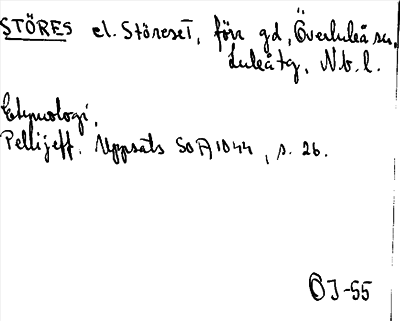 STÖRES el. Störeset, förr gd, Överluleå sn,
Luleå tg, Nb. l.
Etymologi,
Pellijeff. Uppsats SOFA 1044, s. 26.
OJ-55